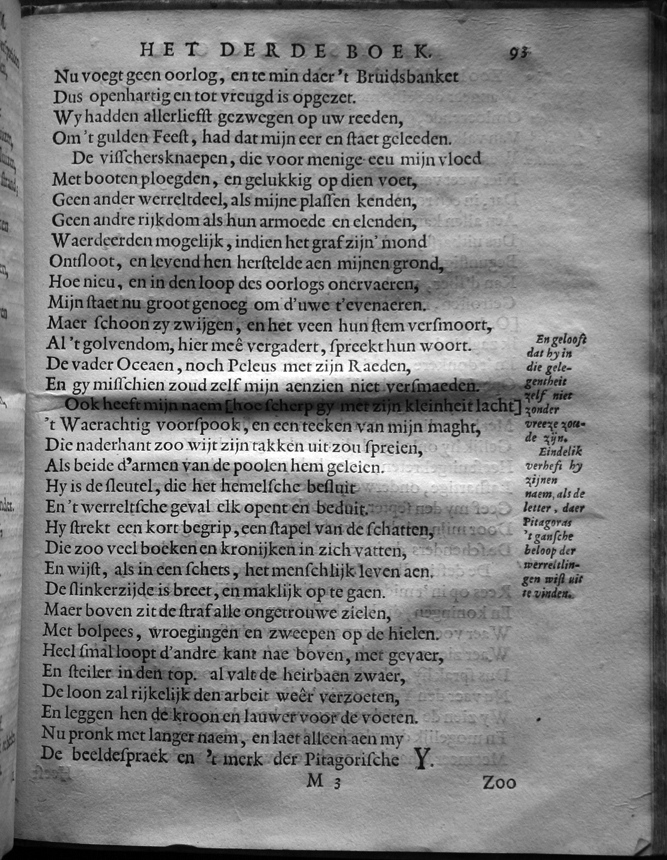 HET DERDE BOEK. 93
Nu voegt geen oorlog, en te min daer 't Bruidsbanket
Dus openhartig en tot vreugd is opgezet.
Wy hadden allerliefst gezwegen op uw reeden,
Om 't gulden Feest, had dat mijn eer en staet geleeden.
De visschersknaepen, die voor menige eeu mijn vloed
Met booten ploegden, en gelukkig op dien voet,
Geen ander werreltdeel, als mijne plassen kenden,
Geen andre rijkdom als hun armoede en elenden,
Waerdeerden mogelijk, indien het graf zijn' mond
Ontsloot, en levend hen herstelde aen mijnen grond,
Hoe nieu, en in den loop des oorlogs onervaeren,
Mijn staet nu groot genoeg om d'uwe t'evenaeren.
Maer schoon zy zwijgen, en het veen hun stem versmoort,
Al 't golvendom, hier meê vergadert, spreekt hun woort.
De vader Oceaen, noch Peleus met zijn Raeden,
En gy misschien zoud zelf mijn aenzien niet versmaeden.
Ook heeft mijn naem [hoe scherp gy met zijn kleinheit lacht]
't Waerachtig voorspook, en een teeken van mijn maght,
Die naderhant zoo wijt zijn takken uit zou spreien,
Als beide d'armen van de poolen hem geleien.
Hy is de sleutel, die het hemelsche besluit
En 't werreltsche geval elk opent en beduit.
Hy strekt een kort begrip, een stapel van de schatten,
Die zoo veel boeken en kronijken in zich vatten,
En wijst, als in een schets, het menschlijk leven aen.
De slinkerzijde is breet, en maklijk op te gaen.
Maer boven zit de straf alle ongetrouwe zielen,
Met bolpees, wroegingen en zweepen op de hielen.
Heel smal loopt d'andre kant nae boven, met gevaer,
En steiler in den top. al valt de heirbaen zwaer,
De loon zal rijkelijk den arbeit weêr verzoeten,
En leggen hen de kroon en lauwer voor de voeten.
Nu pronk met langer naem, en laet alleen aen my
De beeldespraek en 't merk der Pitagorische Y.
M 3 Zoo
En gelooft
dat hy in
die gele-
gentheit
zelf niet
zonder
vreeze zou-
de zijn.
Eindelik
verheft hy
zijnen
naem, als de
letter, daer
Pitagoras
't gansche
beloop der
werreltlin-
gen wist uit
te vinden.